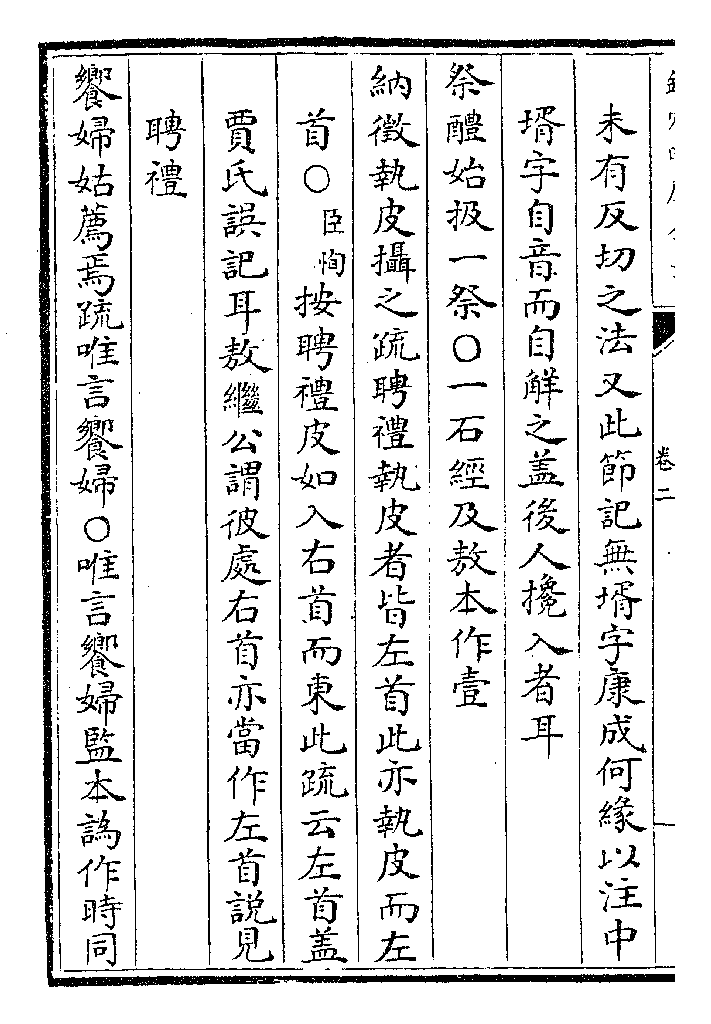 卷二
未有反切之法又此節記無壻字康成何緣以注中
壻字自音而自解之蓋後人攙入者耳
祭醴始扱一祭○一石經及敖本作壹
納徵執皮攝之疏聘禮執皮者皆左首此亦執皮而左
首○臣恂按聘禮皮如入右首而東此疏云左首蓋
賈氏誤記耳敖繼公謂彼處右首亦當作左首説見
聘禮
饗婦姑薦焉疏唯言饗婦○唯言饗婦監本譌作時同